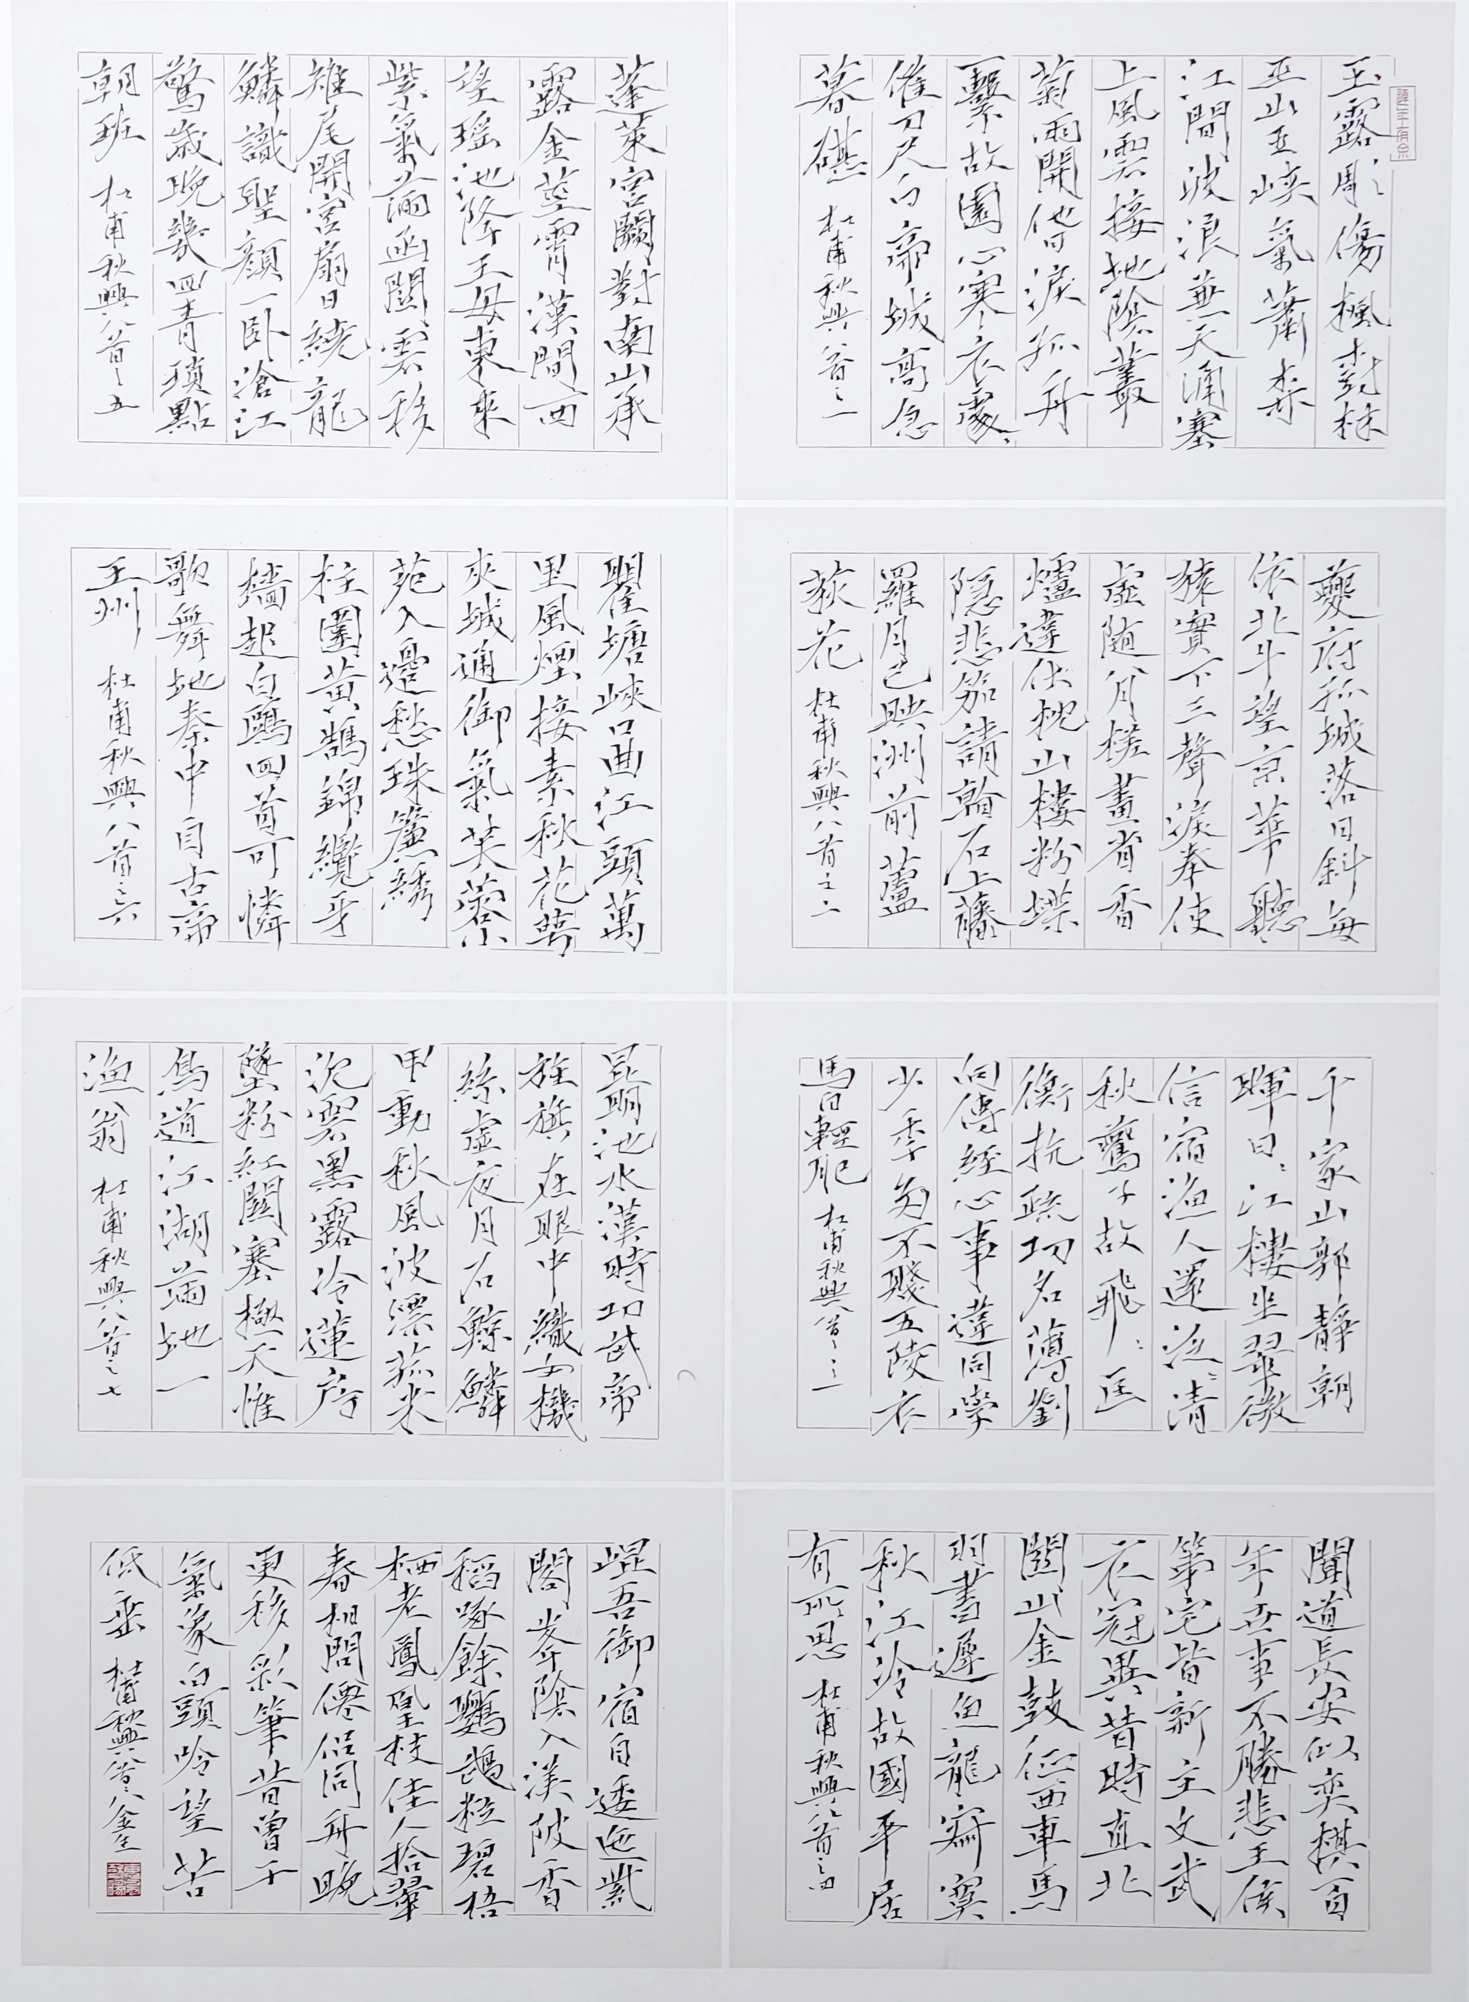 玉露彫傷楓樹林
巫山巫峽氣蕭森
江間波浪兼天涌塞
上風雲接地陰叢
菊兩開他日淚孤舟
一繫故園心寒衣處〻
催刀尺白帝城高急
暮碪 杜甫秋興八首之一
夔府孤城落日斜每
依北斗望京華聽
猿實下三聲淚奉使
虛隨八月槎畫省香
爐違伏枕山樓粉堞
隱悲笳請看石上藤
羅月已映洲前蘆
荻花 杜甫秋興八首之二
千家山郭靜朝
暉日〻江樓坐翠微
信宿漁人還泛〻清
秋燕子故飛〻匡
衡抗疏功名薄劉
向傳經心事違同學
少年多不賤五陵衣
馬自輕肥 杜甫秋興八首之三
聞道長安似奕棋百
年世事不勝悲王侯
第宅皆新主文武
衣冠異昔時直北
關山金鼓征西車馬
羽書遲魚龍寂寞
秋江冷故國平居
有所思 杜甫秋興八首之四
蓬萊宮闕對南山承
露金莖霄漢間西
望瑤池降王母東來
紫氣滿函關雲移
雉尾開宮扇日繞龍
鱗識聖顏一臥滄江
驚歲晚幾回青瑣點
朝班 杜甫秋興八首之五
瞿塘峽口曲江頭萬
里風煙接素秋花萼
夾城通御氣芙蓉小
苑入邊愁珠簾繡
柱圍黃鵠錦纜牙
檣起白鷗回首可憐
歌舞地秦中自古帝
王州 杜甫秋興八首之六
昆明池水漢時功武帝
旌旗在眼中織女機
絲虛夜月石鯨鱗
甲動秋風波漂菰米
沉雲黑露冷蓮房
墜粉紅關塞極天惟
鳥道江湖滿地一
漁翁 杜甫秋興八首之七
昆吾御宿自逶迤紫
閣峯陰入渼陂香
稻啄餘鸚鵡粒碧梧
栖老鳳凰枝佳人拾翠
春相問僊侶同舟晚
更移彩筆昔曾干
氣象白頭吟望苦
低垂 杜甫秋興八首之八 金生